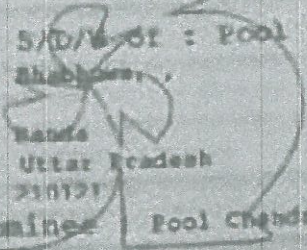 S/D/W of : Pool
Banda
Uttar Pradesh
210121
minee Pool Chand